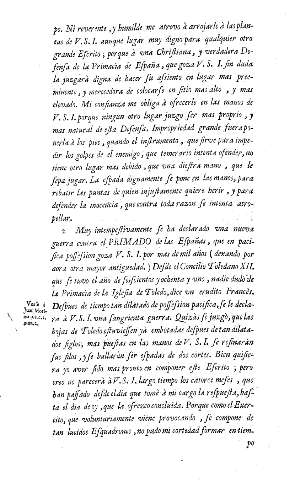 po. Ni reverente, y humilde me atrevo à arrojarle à las plan-
tas de V. S. I. aunque lugar muy digno para qualquier otro
grande Escrito; porque à una Christiana, y verdadera De-
fensa de la Primacia de España, que goza V. S. I. sin duda
la juzgarà digna de hacer su assiento en lugar mas pree-
minente, y merecedora de colocarse en sitio mas alto, y mas
elevado. Mi confianza me obliga à ofrecerle en las manos de
V. S. I. porque ningun otro lugar juzgo ser mas proprio, y
mas natural de esta Defensa. Impropriedad grande fuera po-
nerla à los pies, quando el instrumento, que sirve para impe-
dir los golpes de el enemigo, que temerario intenta ofender, no
tiene otro lugar mas debido, que una diestra mano, que le
sepa jugar. La espada dignamente se pone en las manos, para
rebatir las puntas de quien injustamente quiere herir, y para
defender la inocencia, que contra toda razon se intenta atro-
pellar.
2 Muy intempestivamente se ha declarado una nueva
guerra contra el PRIMADO de las Españas, que en paci-
fica possession goza V. S. I. por mas de mil años (dexando por
aora otra mayor antiguedad.) Desde el Concilio Toledano XII.
que se tuvo el año de seiscientos y ochenta y uno, nadie dudò de
la Primacia de la Iglesia de Toledo, dice un erudito Francès.
Despues de tiempo tan dilatado de possession pacifica, se le decla-
ra à V. S. I. una sangrienta guerra. Quizàs se juzgò, que las
hojas de Toledo estuviessen yà embotadas despues de tan dilata-
dos siglos, mas puestas en las manos de V. S. I. se refinaràn
sus filos, y se hallaràn ser espadas de dos cortes. Bien quisie-
ra yo aver sido mas pronto en componer este Escrito; pero
no os parecerà à V. S. I. largo tiempo los catorce meses, que
han passado desde el dia que tomè à mi cargo la respuesta, has-
ta el dia de oy, que la ofrezco concluida. Porque como el Exer-
cito, que voluntariamente viene provocando, se compone de
tan lucidos Esquadrones, no pudo mi cortedad formar en tiem-
po